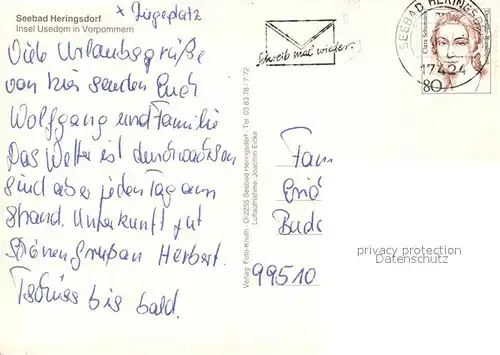 Seebad Heringsdorf
Insel Usedom in Vorpommern
x Liegeplatz
Viele Urlaubsgrüße
von hier senden Euch
Wolfgang und Familie
Das Wetter ist
sind aber jeden Tag am
Strand. Unterkunft gut
Schönen Gruß an Herbert.
Tschüss bis bald.
Verlag: Foto-Knuth · O-2255 Seebad Heringsdorf · Tel. 03 83 78 / 7 72
Luftaufnahme: Joachim Eicke
Schreib mal wieder.
SEEBAD HERINGSD
17424
Clara Schumann
80
Fam
Eric
Bude
99510
privacy protection
Datenschutz